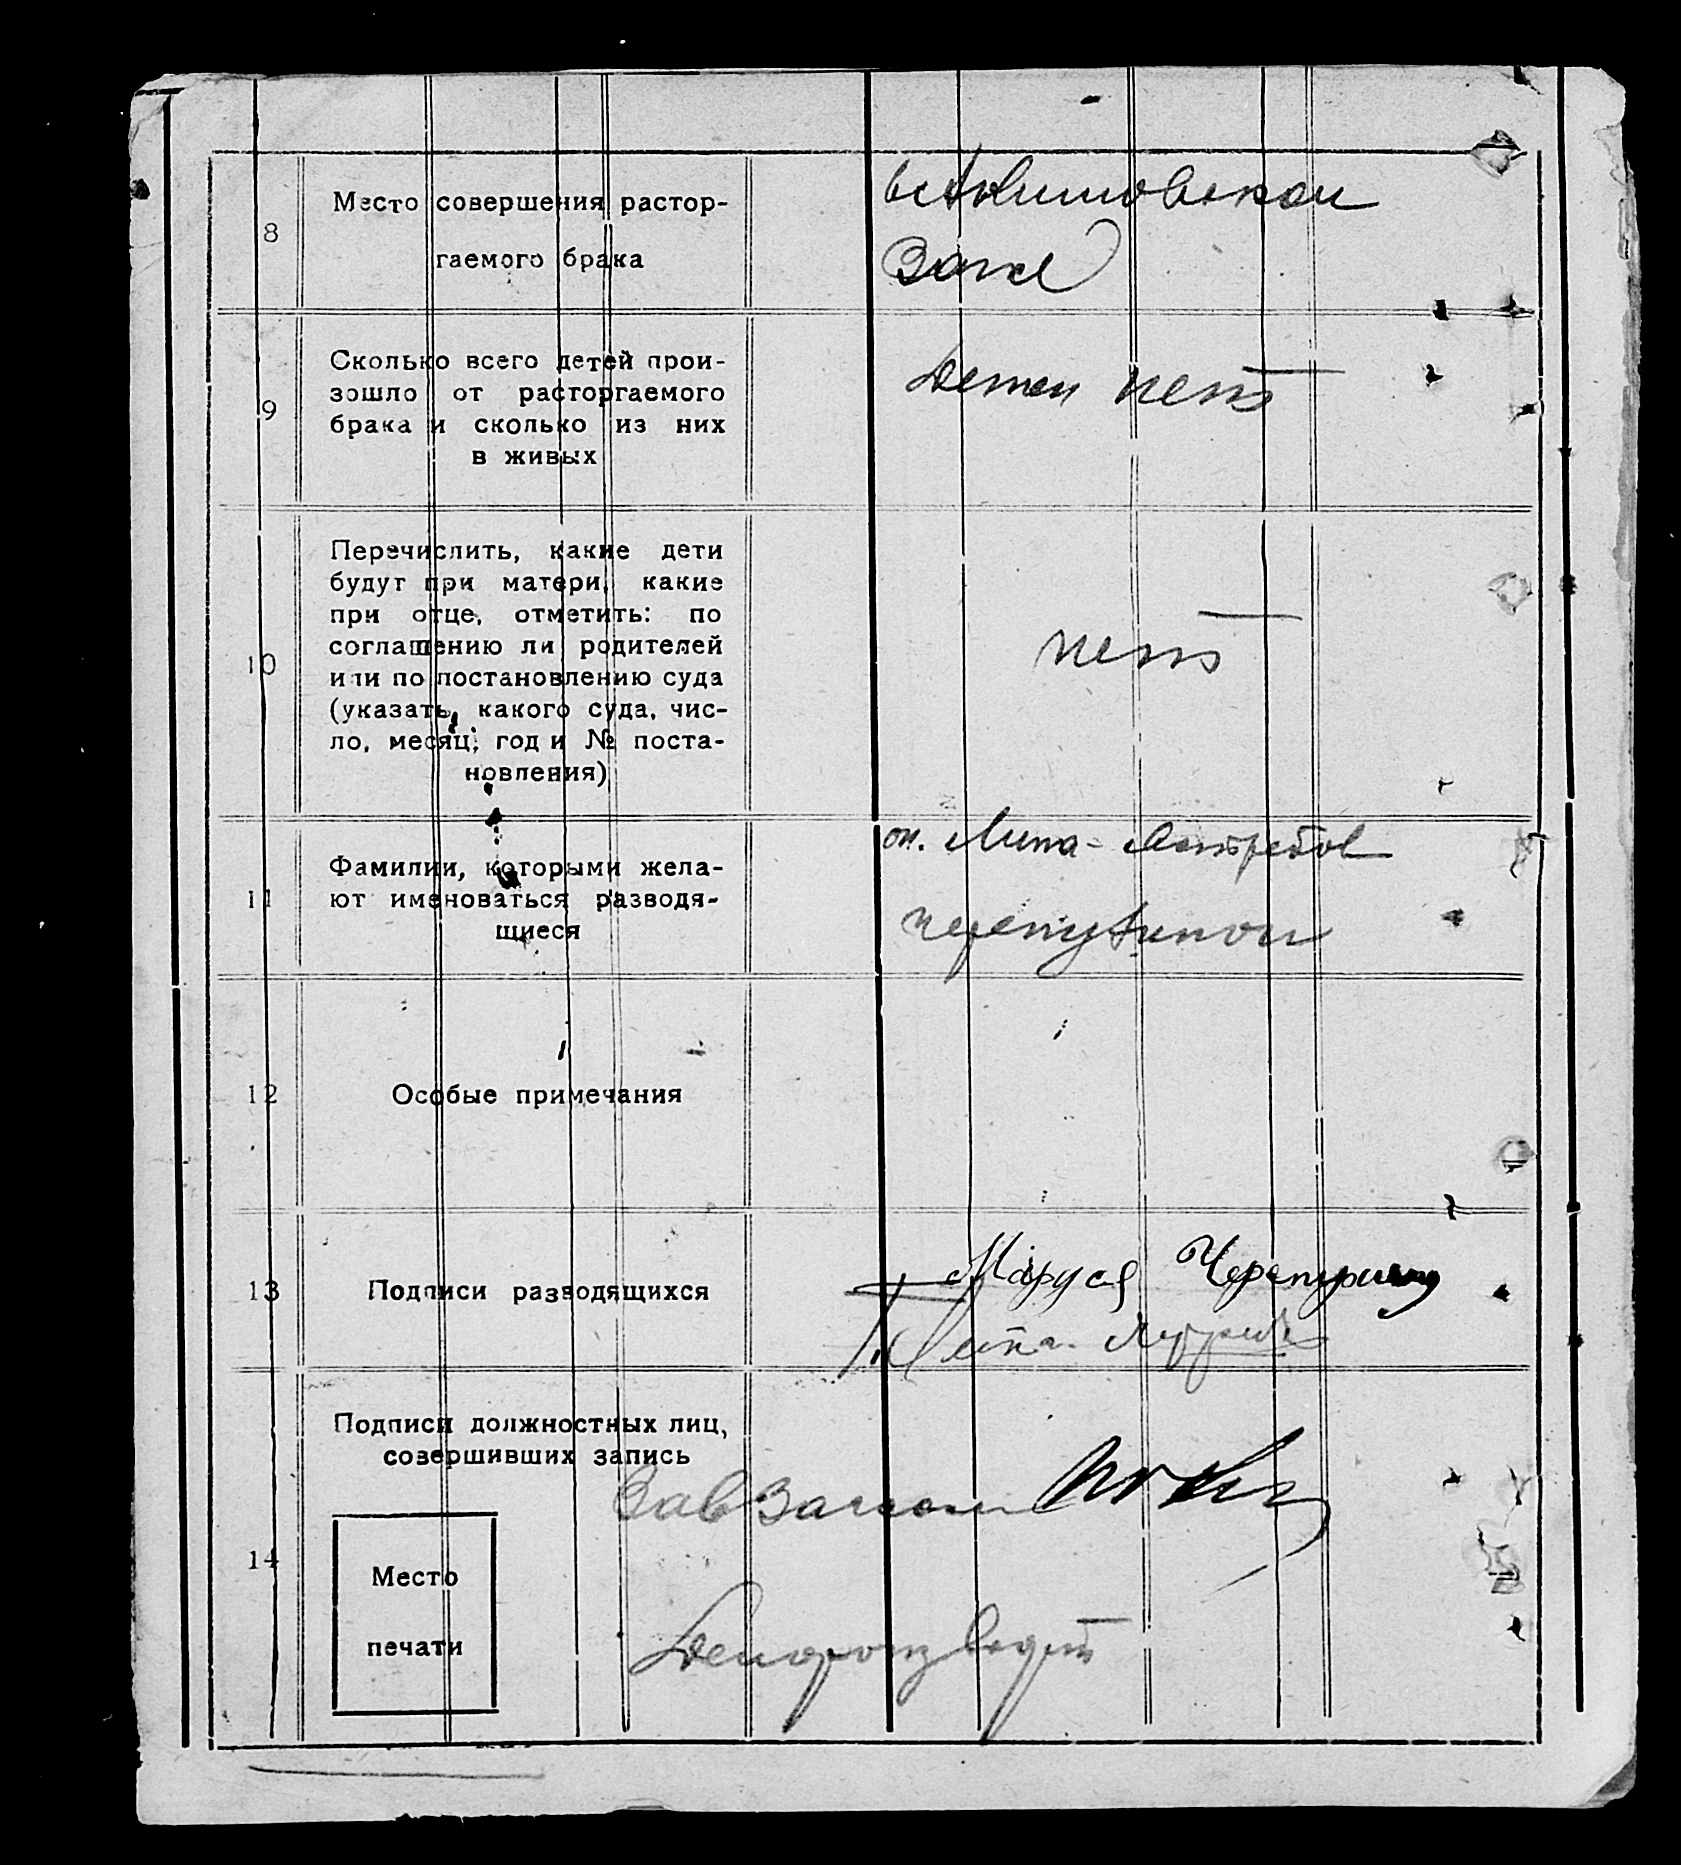 8
Место совершения растор-
гаемого брака
Загсе
9
Сколько всего детей прои-
зошло от расторгаемого
брака и сколько из них
в живых
Детей нет
10
Перечислить, какие дети
будут при матери, какие
при отце, отметить: по
соглашению ли родителей
или по постановлению суда
(указать, какого суда, чис-
ло, месяц, год и № поста-
новления)
нет
11
Фамилии, которыми жела-
ют именоваться разводя-
щиеся
он. Липа-
12
Особые примечания
13
Подписи разводящихся
Маруся
Липа-
14
Подписи должностных лиц,
совершивших запись
Зав Загсом
Место
печати